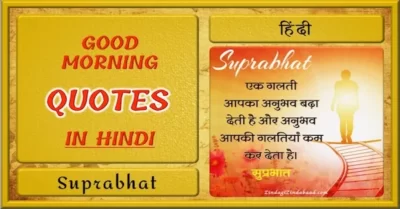 GOOD
MORNING
QUOTES
IN HINDI
Suprabhat
हिंदी
Suprabhat
एक गलती
आपका अनुभव बढ़ा
देती है और अनुभव
आपकी गलतियाँ कम
कर देता है।
सुप्रभात
ZindagiZindabaad.com